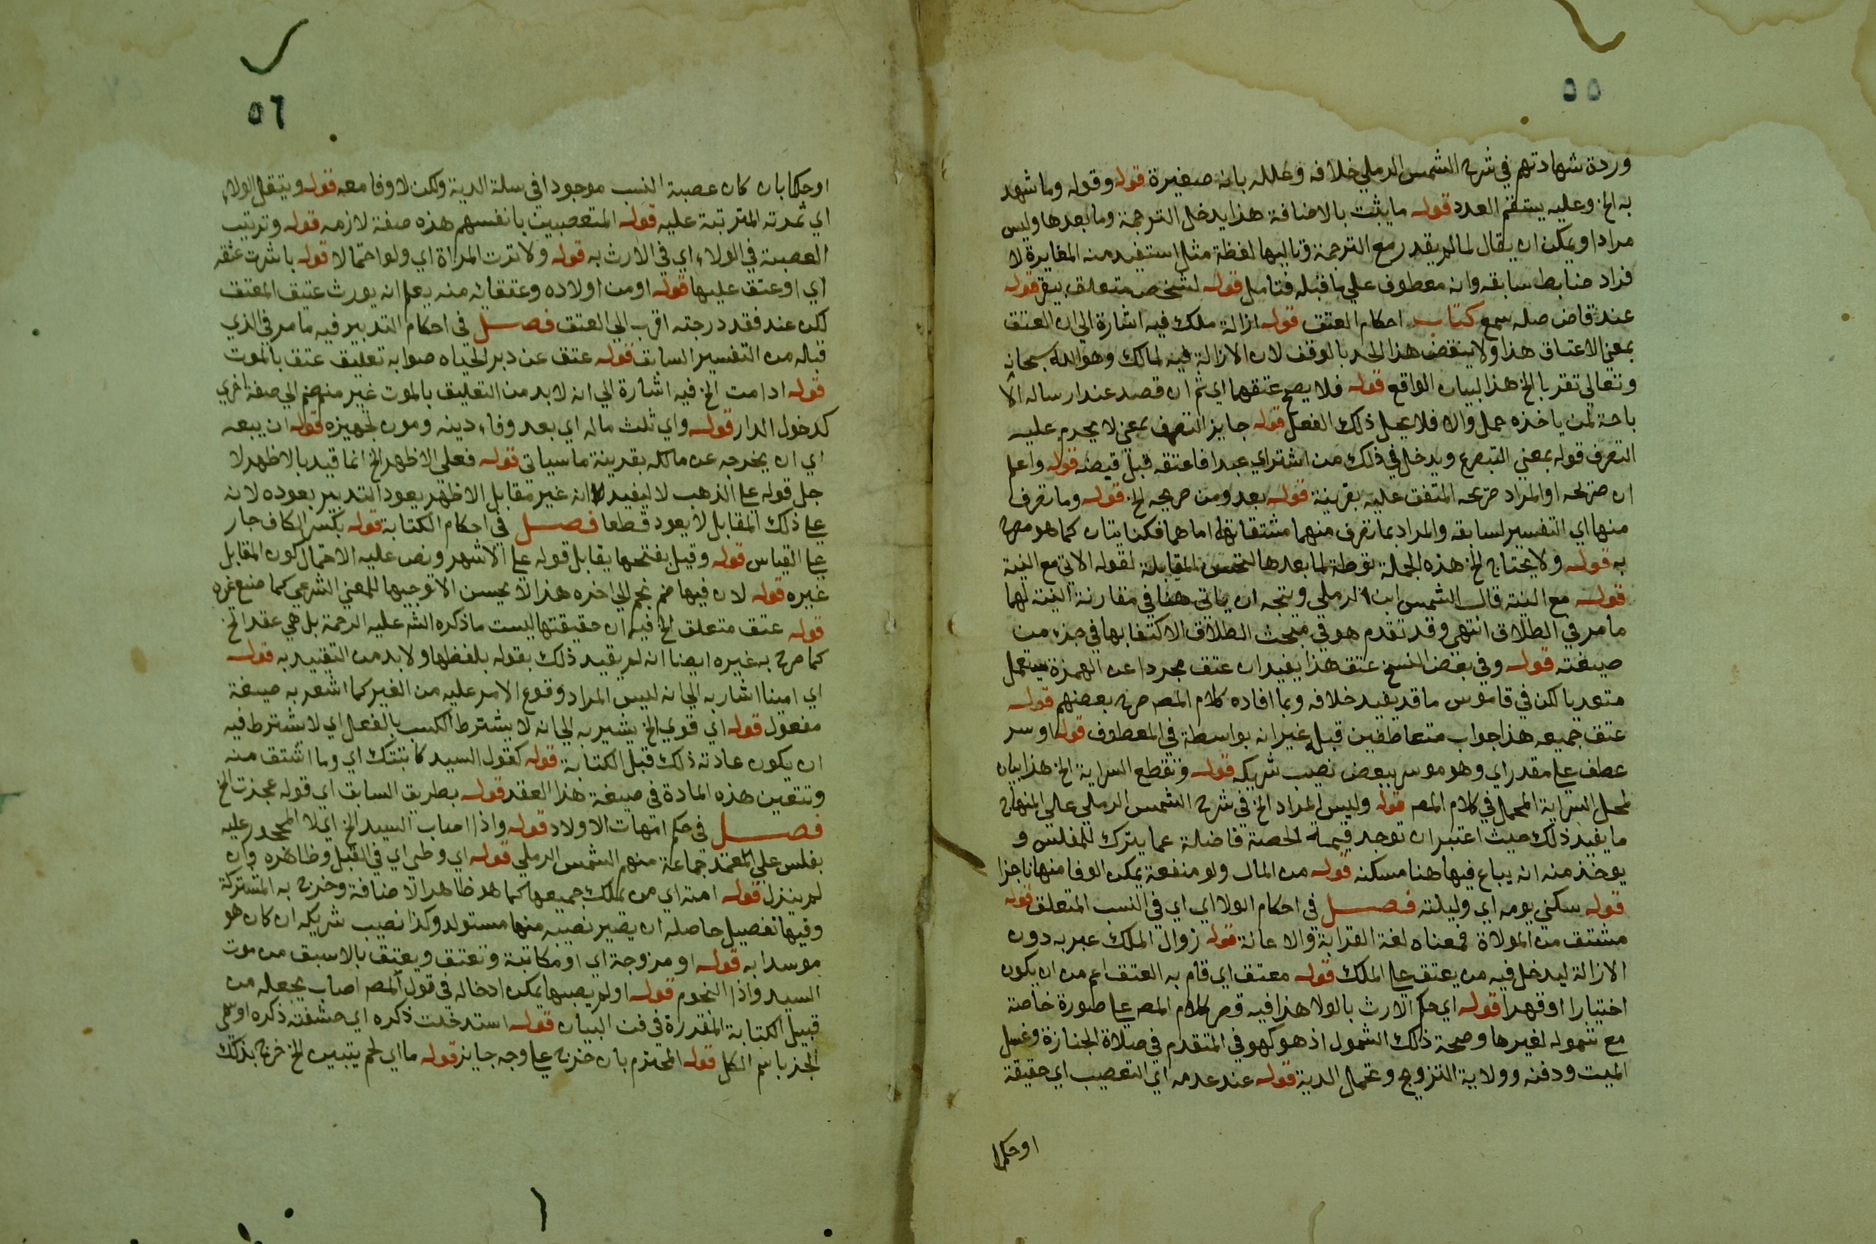 ٥٥
وردة شهادتهم في شرح الشمس الرملي خلافه وعلله بانه صغيرة قوله وقوله وما شهد
به الخ وعليه يستقم العدد قوله ما يثبت بالاضافة هذا يدخل الترجمة وما بعدها وليس
مرادا ويمكن ان يقال لما لم يقدر مع الترجمة وتاليها لفظة مثل استفيد منه المغايرة لا
فراد ضابط سابقه وانه معطوف علي ما قبله فتامل قوله لشخص متعلق بيقر قوله
عند قاض صله سمع كتاب احكام العتق قوله ازالة ملك فيه اشارة الي ان العتق
بمعني الاعتاق هذا ولا ينقض هذا الحد بالوقف لان الازالة فيه لمالك وهو الله سبحانه
وتعالي تقربا الخ هذا لبيان الواقع قوله فلا يصح عتقهما اي ثم ان قصد عند ارساله الا
باحة لمن ياخذه حمل والا فلا يحل ذلك الفعل قوله جايز التصرف بمعني لا يحرم عليه
التصرف قوله بمعني التبرع ويدخل في ذلك من اشتراي عبدا فاعتقه قبل قبضه قوله واعلم
ان صريحه او المراد صريحه المتفق عليه بقرينة قوله بعد ومن صريحه الخ قوله وما تصرف
منها اي التفسير لسابقه والمراد بما تصرف منهما مشتقاتها اما هما فكنايتان كما هو مصرح
به قوله ولا يحتاج الخ هذه الجملة توطئة لما بعدها المقابلة لقوله الاتي مع النية
قوله مع النية قال الشمس ابن الرملي ويتجه ان ياتي هنا في مقارنة النية لها
ما مر في الطلاق انتهي وقد تقدم هو في مبحث الطلاق الاكتفا بها في جزء من
صيغته قوله وفي بعض النسخ عتق هذا يفيد ان عتق مجردا عن الهمزة يستعمل
متعديا لكن في قاموس ما قد يفيد خلافه وبما افاده كلام المص صرح بعضهم قوله
عتق جميعه هذا جواب متعاطفين قبل غير انه بواسطة في المعطوف قوله او سر
عطف علي مقدر اي وهو موسر ببعض نصيب شريكه قوله وتقطع السراية الخ هذا بيان
لمحل السراية المجمل في كلام المص قوله وليس المراد الخ في شرح الشمس الرملي علي المنهاج
ما يفيد ذلك حيث اعتبر ان توجد قيمة الحصة فاضلة عما يترك للمفلس و
يوخذ منه انه يباع فيها هنا مسكنه قوله من المال ولو منفعة يمكن الوفا منها ناجزا
قوله سكني يومه اي وليلته فصل في احكام الولا اي في النسب المتعلق قوله
مشتق من الموالاة فمعناه لغة القرابة والاعانة قوله زوال الملك عبر به دون
الازالة ليدخل فيه من يعتق علي الملك قوله معتق اي قام به العتق اعم من ان يكون
اختيارا او قهرا قوله اي حكم الارث بالولا هذا فيه قصر كلام المص علي صورة خاصة
مع شموله لغيرها وصحة ذلك الشمول اذ هو كهو في المتقدم في صلاة الجنازة وغسل
الميت ودفنه وولاية التزويج وتحمل الدية قوله عند عدمه اي التعصيب اي حقيقة
او حكما
٥٦
او حكما بان كان عصبة النسب موجودا في سلة الدية ولكن لا وفا معه قوله وينتقل الولاء
اي ثمرته المترتبة عليه قوله المتعصبين بانفسهم هذه صفة لازمه قوله وترتيب
العصبة في الولاء اي في الارث به قوله ولا ترث المراة اي ولو احتمالا قوله باشرت عتقه
اي او عتق عليها قوله او من اولاده وعتقائه منه يعلم انه يورث عتيق المعتق
لكن عند فقد درجته اقرب الي العتق فصل في احكام التدبير فيه ما مر في الذي
قبله من التفسير السابق قوله عتق عن دبر الحياة صوابه تعليق عتق بالموت
قوله اذا مت الخ فيه اشارة الي انه لا بد من التعليق بالموت غير منضم الي صفة اخري
كدخول الدار قوله واي ثلث ماله اي بعد وفاء دينه ومون تجهيزه قوله ان يبعه
اي ان يخرجه عن مالكه بقرينة ما سياتي قوله فعلي الاظهر الخ انما قيد بالاظهر لا
جل قوله علي المذهب لا ليفيد انه غير مقابل الاظهر يعود التدبير بعوده لانه
علي ذلك المقابل لا يعود قطعا فصل في احكام الكتابة قوله بكسر الكاف جار
علي القياس قوله وقيل بفتحها يقابل قوله علي الاشهر ونص عليه الاحتمال كون المقابل
غيره قوله لان فيها ضم نجم الي اخره هذا لا يحسن الا توجيها للمعني الشرعي كما صنع غيره
قوله عتق متعلق الخ فيه ان حقيقتها ليست ما ذكره الشر عليه الرحمة بل هي عقد الخ
كما صرح به غيره ايضا انه لم يقيد ذلك بقوله بلفظها ولا بد من التقييد به قوله
اي امينا اشار به الي انه ليس المراد وقوع الامر عليه من الغير كما اشعر به صيغة
مفعول قوله اي قوي الخ يشير به الي انه لا يشترط الكسب بالفعل اي لا يشترط فيه
ان يكون عادته ذلك قبل الكتابة قوله كقول السيد كاتبتك اي وما اشتق منه
وتتعين هذه المادة في صيغة هذا العقد قوله بطريق السابق اي قوله عجزت الخ
فصل في حكم امهات الاولاد قوله واذا اصاب السيد الخ اي لا المحجور عليه
بفلس علي المعتمد جماعة منهم الشمس الرملي قوله اي وطئ اي في القبل وظاهره وان
لم ينزل قوله امته اي من يملك جميعها كما هو ظاهر الاضافة وخرج به المشتركة
وفيها تفصيل حاصله ان يصير نصيبه منها مستولد وكذا نصيب شريكه ان كان هو
موسرا به قوله او مزوجة اي او مكاتبة وتعتق ويعتق بالاسبق من موت
السيد واذا النجوم قوله او لم يصبها يمكن ادخاله في قول المص اصاب بجعله من
قبيل الكتابة المقدرة في فن البيان قوله استدخلت ذكره اي حشفته ذكره او سمي
الجذ باسم الكل قوله المحترم بان خرج علي وجه جايز قوله ما اي لحم يتبين الخ خرج بذلك